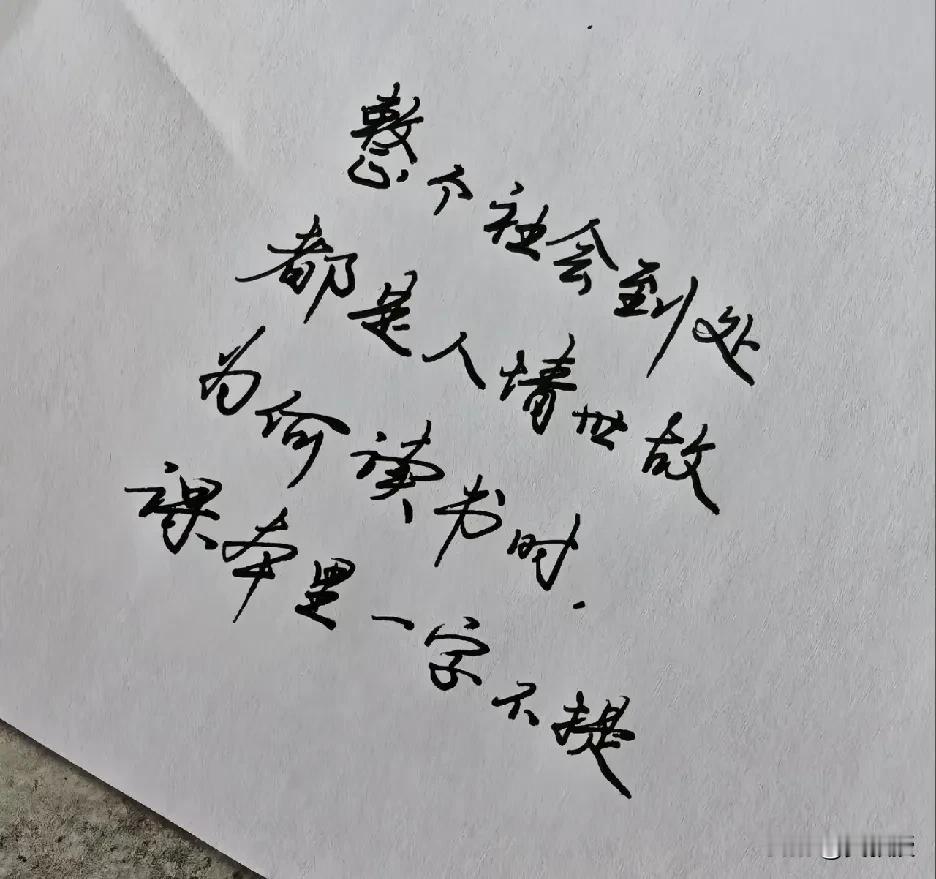 整个社会到处
都是人情世故
为何读书时.
课本里一字不提